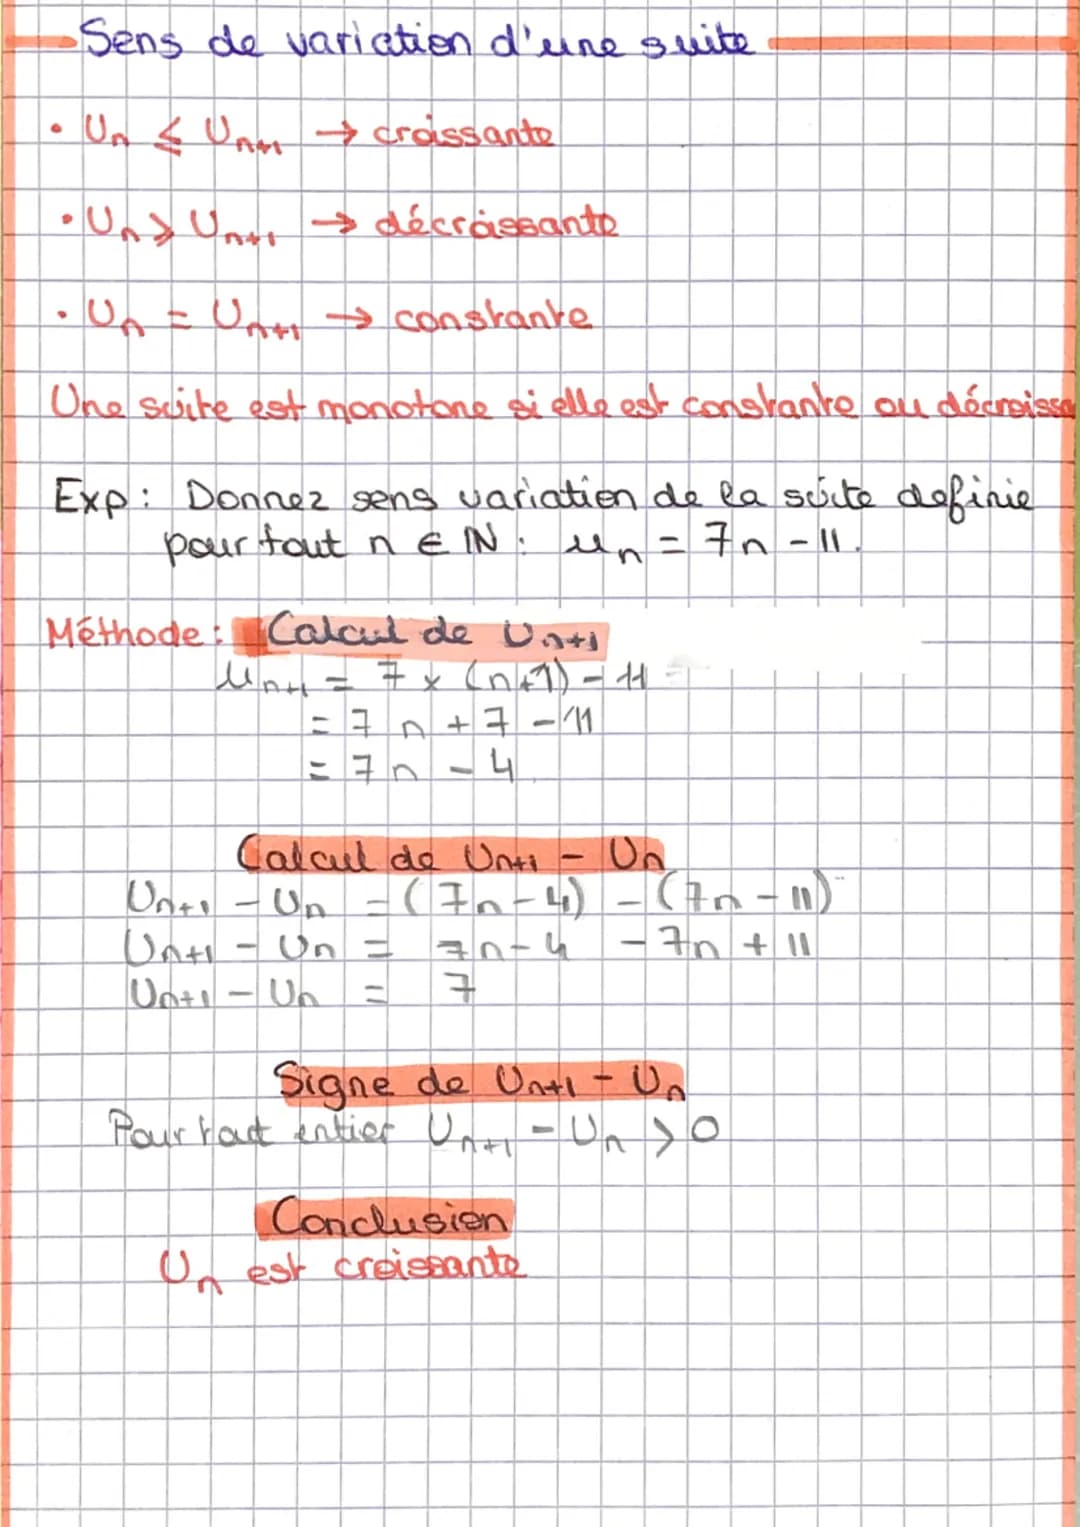 Sens de variation d'une suite
• Un ≤ Un+1 → croissante
• Un ≥ Un+1 → décroissante
• Un = Un+1 → constante
Une suite est monotone si elle est constante ou décroissa
Exp : Donnez sens variation de la suite definie
pour tout n ∈ ℕ : un = 7n - 11.
Méthode : Calcul de Un+1
un+1 = 7 x (n+1) - 11
= 7n + 7 - 11
= 7n - 4
Calcul de Un+1 - Un
Un+1 - Un = (7n - 4) - (7n - 11)
Un+1 - Un = 7n - 4 - 7n + 11
Un+1 - Un = 7
Signe de Un+1 - Un
Pour tout entier Un+1 - Un > 0
Conclusion
Un est croissante